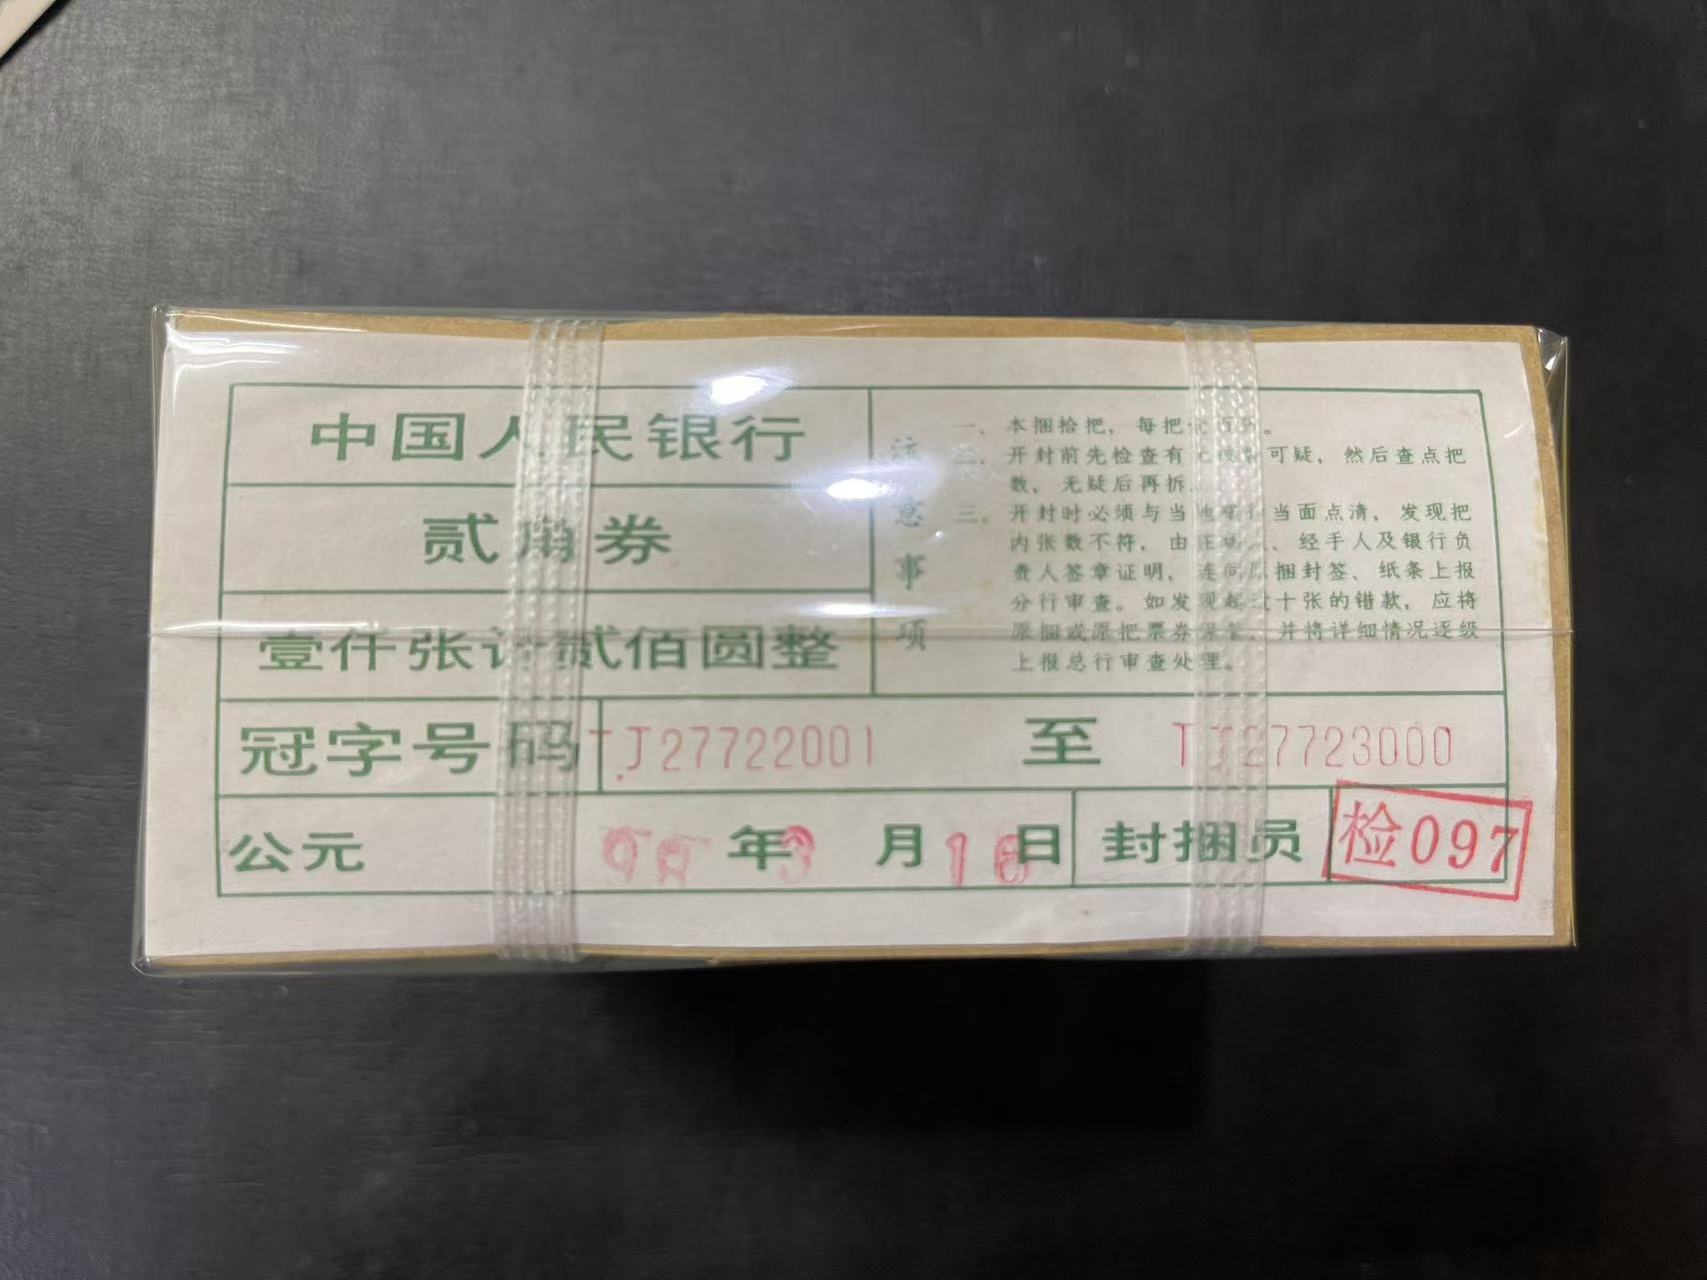 中国人民银行
贰角券
壹仟张计贰佰圆整
注意事项
一、本捆拾把，每把
二、开封前先检查有 可疑，然后查点把
数，无疑后再拆
三、开封时必须与当地 当面点清，发现把
内张数不符，由 、经手人及银行负
责人签章证明，连同原捆封签、纸条上报
分行审查。如发现超过十张的错款，应将
原捆或原把票券保管，并将详细情况逐级
上报总行审查处理。
冠字号码 TJ27722001 至 TJ27723000
公元 年3月16日 封捆员 检097